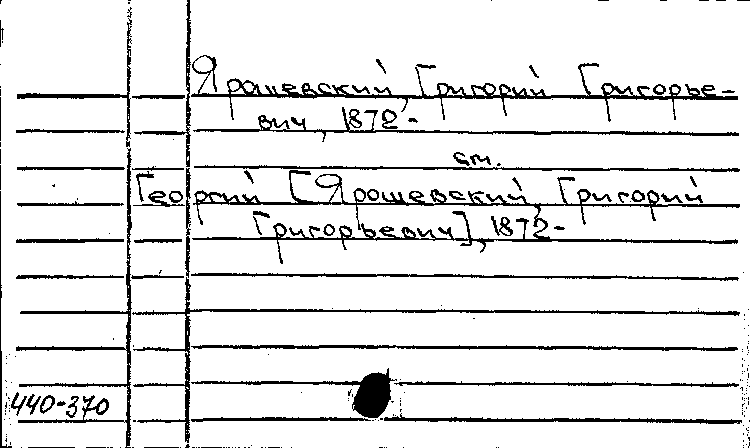 Ярошевский, Григорий Григорье-
вич, 1872-
см.
Георгий [Ярошевский, Григорий
Григорьевич], 1872-
440-370